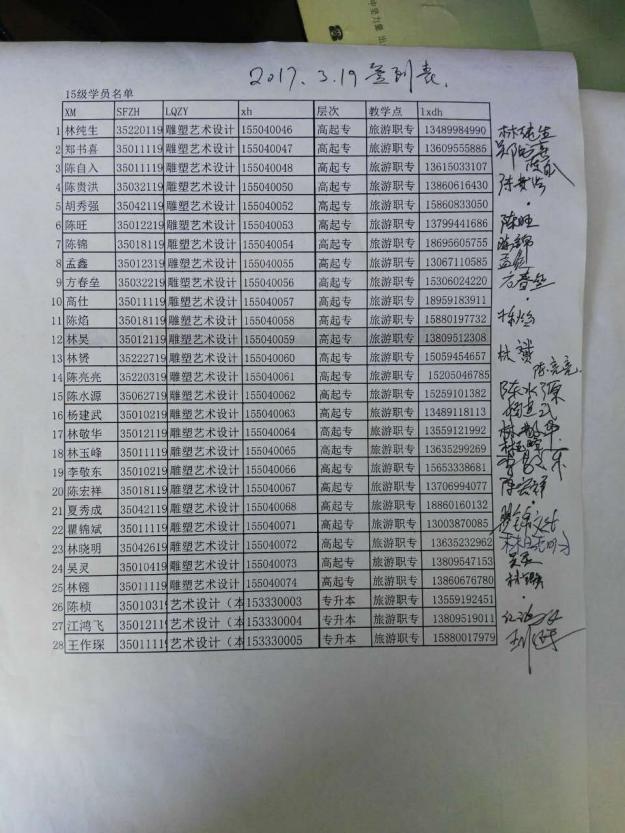 2017.3.19签到表.
15级学员名单
XM SFZH LQZY xh 层次 教学点 lxdh
1 林纯生 35220119 雕塑艺术设计 155040046 高起专 旅游职专 13489984990
2 郑书喜 35011119 雕塑艺术设计 155040047 高起专 旅游职专 13609555885
3 陈自入 35011119 雕塑艺术设计 155040048 高起专 旅游职专 13615033107
4 陈贵洪 35032119 雕塑艺术设计 155040050 高起专 旅游职专 13860616430
5 胡秀强 35042119 雕塑艺术设计 155040052 高起专 旅游职专 15860833050
6 陈旺 35012219 雕塑艺术设计 155040053 高起专 旅游职专 13799441686 陈旺
7 陈锦 35018119 雕塑艺术设计 155040054 高起专 旅游职专 18695605755 陈锦
8 孟鑫 35012319 雕塑艺术设计 155040055 高起专 旅游职专 13067110585 孟鑫
9 方春垒 35032219 雕塑艺术设计 155040056 高起专 旅游职专 15306024220 方春垒
10 高仕 35011119 雕塑艺术设计 155040057 高起专 旅游职专 18959183911
11 陈焰 35018119 雕塑艺术设计 155040058 高起专 旅游职专 15880197732 陈焰
12 林昊 35012119 雕塑艺术设计 155040059 高起专 旅游职专 13809512308
13 林赟 35222719 雕塑艺术设计 155040060 高起专 旅游职专 15059454657 林赟
14 陈亮亮 35220319 雕塑艺术设计 155040061 高起专 旅游职专 15205046785 陈亮亮
15 陈水源 35062719 雕塑艺术设计 155040062 高起专 旅游职专 15259101382 陈水源
16 杨建武 35010219 雕塑艺术设计 155040063 高起专 旅游职专 13489118113 杨建武
17 林敬华 35012119 雕塑艺术设计 155040064 高起专 旅游职专 13559121992 林敬华
18 林玉峰 35011119 雕塑艺术设计 155040065 高起专 旅游职专 13635299269
19 李敬东 35010219 雕塑艺术设计 155040066 高起专 旅游职专 15653338681
20 陈宏祥 35018119 雕塑艺术设计 155040067 高起专 旅游职专 13706994077 陈宏祥
21 夏秀成 35042119 雕塑艺术设计 155040068 高起专 旅游职专 18860160132
22 瞿锦斌 35011119 雕塑艺术设计 155040071 高起专 旅游职专 13003870085 瞿锦斌
23 林晓明 35042619 雕塑艺术设计 155040072 高起专 旅游职专 13635232962 林晓明
24 吴灵 35010419 雕塑艺术设计 155040073 高起专 旅游职专 13809547153 吴灵
25 林镪 35011119 雕塑艺术设计 155040074 高起专 旅游职专 13860676780 林镪
26 陈桢 35010319 艺术设计（本 153330003 专升本 旅游职专 13559192451
27 江鸿飞 35012119 艺术设计（本 153330004 专升本 旅游职专 13809519011
28 王作琛 35011119 艺术设计（本 153330005 专升本 旅游职专 15880017979